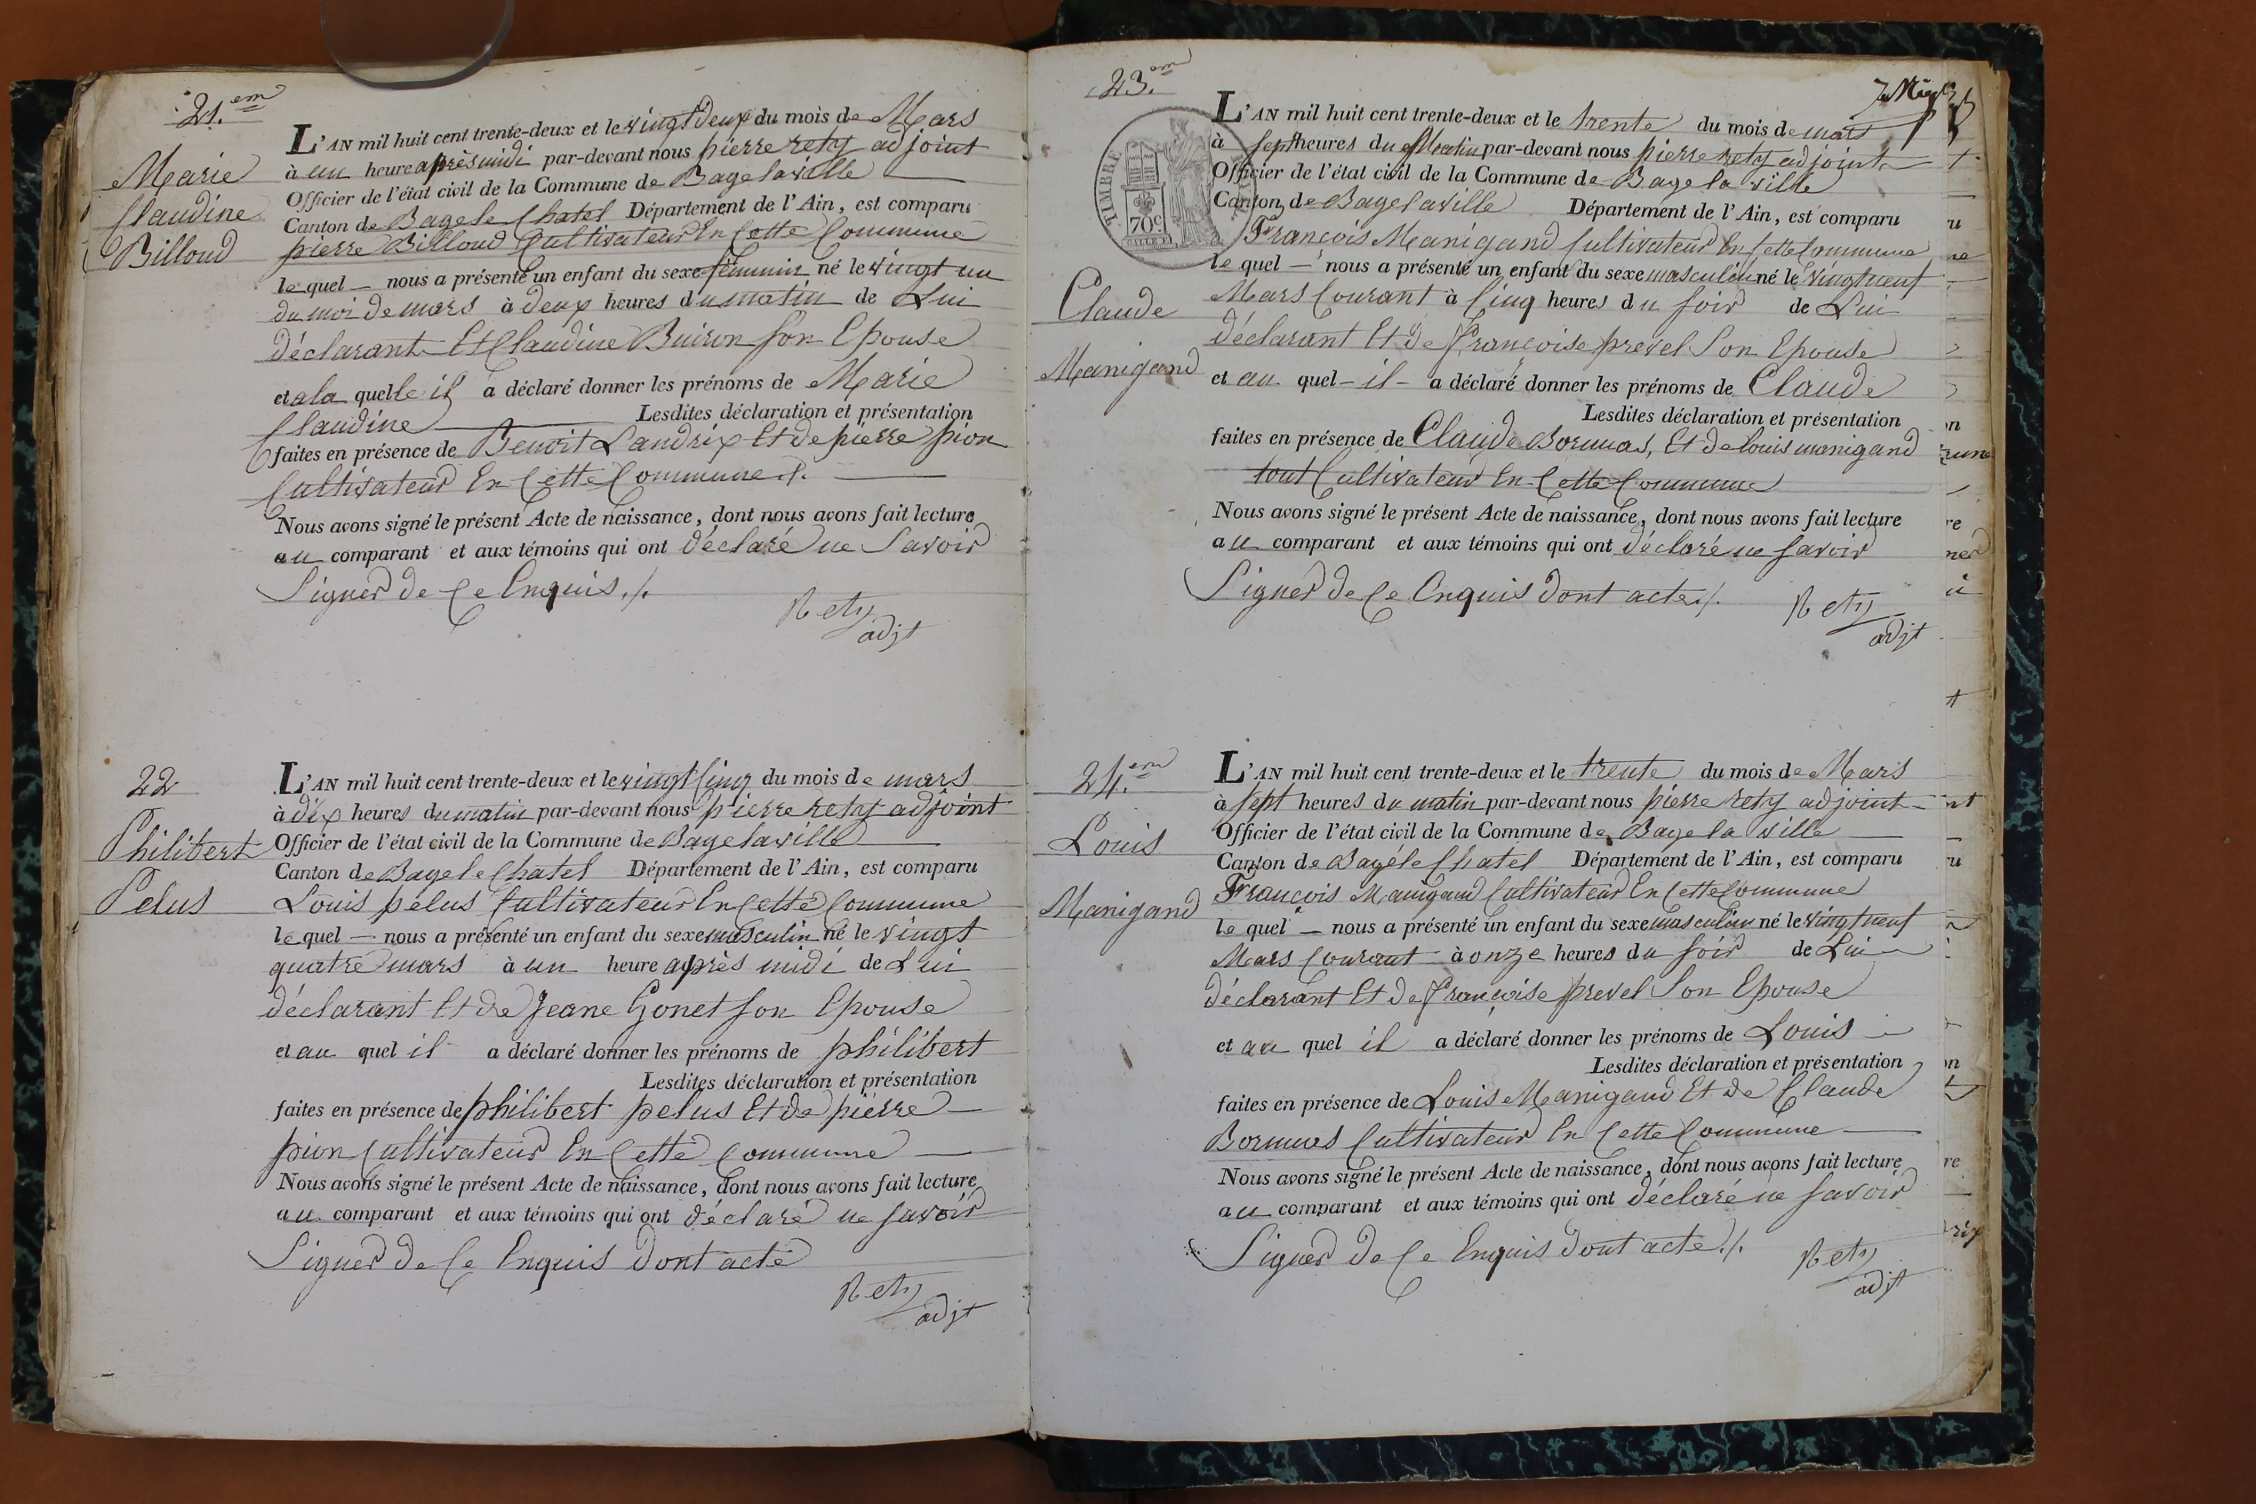 21.em
Marie
Claudine
Billoud
L'AN mil huit cent trente-deux et le vingt deux du mois de Mars
à un heure après midi par-devant nous pierre rety adjoint
Officier de l'état civil de la Commune de Bage la ville
Canton de Bage le Chatel Département de l'Ain, est comparu
pierre Billoud Cultivateur En Cette Commune
le quel — nous a présenté un enfant du sexe féminin né le vingt un
du moi de mars à deux heures du matin de Lui
déclarant Et Claudine Buiron son Epouse
et a la quelle il a déclaré donner les prénoms de Marie
Claudine — Lesdites déclaration et présentation
faites en présence de Benoit Landrix Et de pierre pion
Cultivateur En Cette Commune ./.
Nous avons signé le présent Acte de naissance, dont nous avons fait lecture
au comparant et aux témoins qui ont déclaré ne Savoir
Signer de Ce Enquis ./.
Rety
adjt
22
Philibert
Pelus
L'AN mil huit cent trente-deux et le vingt Cinq du mois de mars
à dix heures du matin par-devant nous pierre rety adjoint
Officier de l'état civil de la Commune de Bage la ville
Canton de Bage le Chatel Département de l'Ain, est comparu
Louis pelus Cultivateur En Cette Commune
le quel — nous a présenté un enfant du sexe masculin né le vingt
quatre mars à un heure après midi de Lui
déclarant Et de Jeane Gonet son Epouse
et au quel il a déclaré donner les prénoms de philibert
Lesdites déclaration et présentation
faites en présence de philibert pelus Et de pierre —
pion Cultivateur En Cette Commune —
Nous avons signé le présent Acte de naissance, dont nous avons fait lecture
au comparant et aux témoins qui ont déclaré ne savoir
Signer de Ce Enquis dont acte
Rety
adjt
23.em
TIMBRE
70c
Claude
Manigand
L'AN mil huit cent trente-deux et le trente du mois de mars
à sept heures du Matin par-devant nous pierre rety adjoint
Officier de l'état civil de la Commune de Bage la ville
Canton de Bage la ville Département de l'Ain, est comparu
François Manigand Cultivateur En Cette Commune
le quel — nous a présenté un enfant du sexe masculin né le vingt neuf
Mars Courant à Cinq heures du soir de Lui
déclarant Et de Françoise prevel Son Epouse
et au quel — il — a déclaré donner les prénoms de Claude
Lesdites déclaration et présentation
faites en présence de Claude Bormas, Et de louis manigand
tout Cultivateur En Cette Commune
Nous avons signé le présent Acte de naissance, dont nous avons fait lecture
au comparant et aux témoins qui ont déclaré ne savoir
Signer de Ce Enquis dont acte ./.
Rety
adjt
24.em
Louis
Manigand
L'AN mil huit cent trente-deux et le trente du mois de Mars
à sept heures du matin par-devant nous pierre rety adjoint —
Officier de l'état civil de la Commune de Bage la ville —
Canton de Bagé le Chatel Département de l'Ain, est comparu
François Manigand Cultivateur En Cette Commune
le quel — nous a présenté un enfant du sexe masculin né le vingt neuf
Mars Courant à onze heures du soir de Lui —
déclarant Et de Françoise prevel Son Epouse
et au quel il a déclaré donner les prénoms de Louis —
Lesdites déclaration et présentation
faites en présence de Louis Manigand Et de Claude
Bormas Cultivateur En Cette Commune —
Nous avons signé le présent Acte de naissance, dont nous avons fait lecture
au comparant et aux témoins qui ont déclaré ne savoir
Signer de Ce Enquis dont acte ./.
Rety
adjt